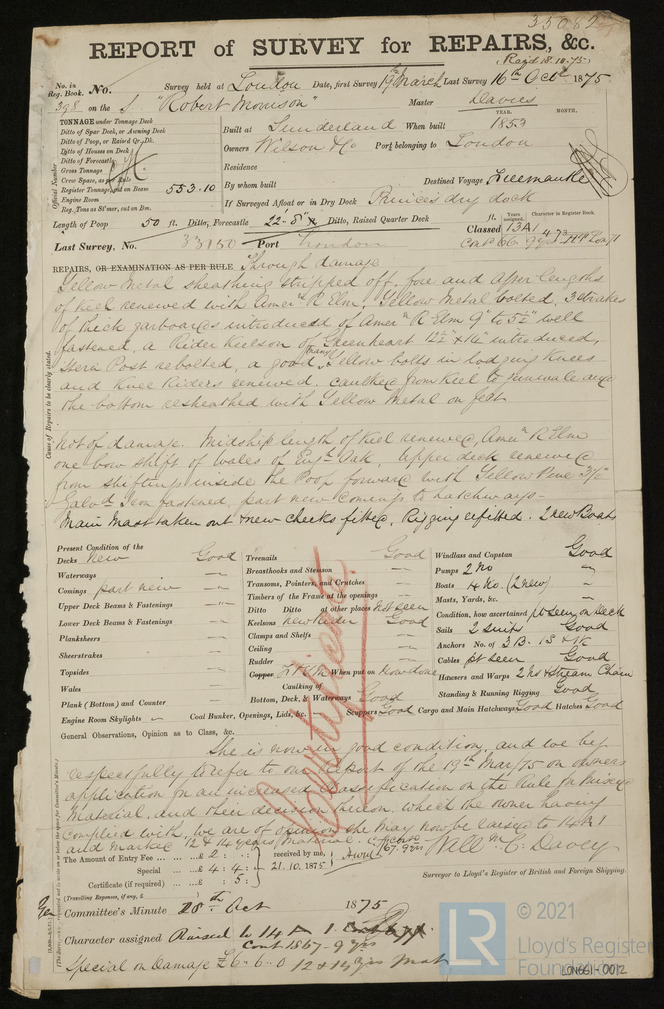 35082
REPORT of SURVEY for REPAIRS, &c.
(Recd 18.10.75)
No. in Reg. Book. No. Survey held at London Date, first Survey 19th March Last Survey 16th Octr 1875
398 on the S. "Robert Morrison" Master Davies
YEAR. MONTH.
TONNAGE under Tonnage Deck
Ditto of Spar Deck, or Awning Deck
Ditto of Poop, or Raised Qr. Dk.
Ditto of Houses on Deck
Ditto of Forecastle
Gross Tonnage
Crew Space, as per Rule
Register Tonnage, cut on Beam 553.10
Engine Room
Reg. Tons as St'mer, cut on Bm.
Official Number
Built at Sunderland When built 1853
Owners Wilson & Co Port belonging to London
Residence
By whom built Destined Voyage
If Surveyed Afloat or in Dry Dock Princes dry dock
Length of Poop 50 ft. Ditto, Forecastle 22'.8" Ditto, Raised Quarter Deck ft.
Years assigned. Character in Register Book.
Classed 13A1 4.73
Last Survey, No. 33150 Port London Cont 66. 9 yrs
REPAIRS, OR EXAMINATION AS PER RULE Through damage
Yellow Metal sheathing stripped off, fore and after lengths
of Keel renewed with Amern R Elm. Yellow metal bolted, 3 strakes
of thick garboards introduced of Amern R Elm 9" to 5½" well
fastened, a Rider Keelson of Greenheart introduced,
Stern Post rebolted, a good many Yellow bolts in lodging Knees
and Knee Riders renewed. caulked from Keel to Gunwale and
the bottom resheathed with Yellow Metal on felt
Cause of Repairs to be clearly stated.
Not of damage. Midship length of Keel renewed, Amern R Elm
one bow shift of wales of Engh Oak, Upper deck renewed
from shifting inside the Poop forward with Yellow Pine
Galvd Iron fastened, part new comings to hatchways -
Main Mast taken out & new cheeks fitted, Rigging refitted. 2 new Boats
Present Condition of the
Decks New Good
Waterways
Comings part new
Upper Deck Beams & Fastenings
Lower Deck Beams & Fastenings
Planksheers
Sheerstrakes
Topsides
Wales
Plank (Bottom) and Counter
Engine Room Skylights
Treenails Good
Breasthooks and Stemson
Transoms, Pointers, and Crutches
Timbers of the Frame at the openings
Ditto Ditto at other places Not seen
Keelsons New Rider Good
Clamps and Shelfs
Ceiling
Rudder
Copper F & Y M When put on Now done
Caulking of
Bottom, Deck, & Waterways Good
Coal Bunker, Openings, Lids, &c. Scuppers Good Cargo and Main Hatchways Good Hatches Good
Windlass and Capstan Good
Pumps 2 No
Boats 4 No. (2 new)
Masts, Yards, &c.
Condition, how ascertained pt seen, on deck
Sails 2 suit Good
Anchors No. of 3 B. 1 S & 1 K
Cables pt seen Good
Hawsers and Warps 2 Hs & stream Chain
Standing & Running Rigging Good
General Observations, Opinion as to Class, &c.
She is now in good condition, and we beg
respectfully to refer to our report of the 19th Mar/75 on owners
application for an increased classification on the Rule for Mixed
Material, and their decision thereon, which the owner having
complied with, we are of opinion she may now be raised to 14 A 1
and marked 12 & 14 years Material. Cont 67. 9 yrs
The Amount of Entry Fee £ 2 : :
Special £ 4 : 4 :
Certificate (if required) : 5 :
(Travelling Expenses, if any, £
received by me, 21.10.1875
Willm C. Davey
Surveyor to Lloyd's Register of British and Foreign Shipping.
Committee's Minute 28th Oct 1875
Character assigned Raised to 14 A 1
Cont 1867-9 yrs
Special on Damage £6-6-0 12 & 14 yrs Mat
LR
© 2021
Lloyd's Register
Foundation
LON661-0012